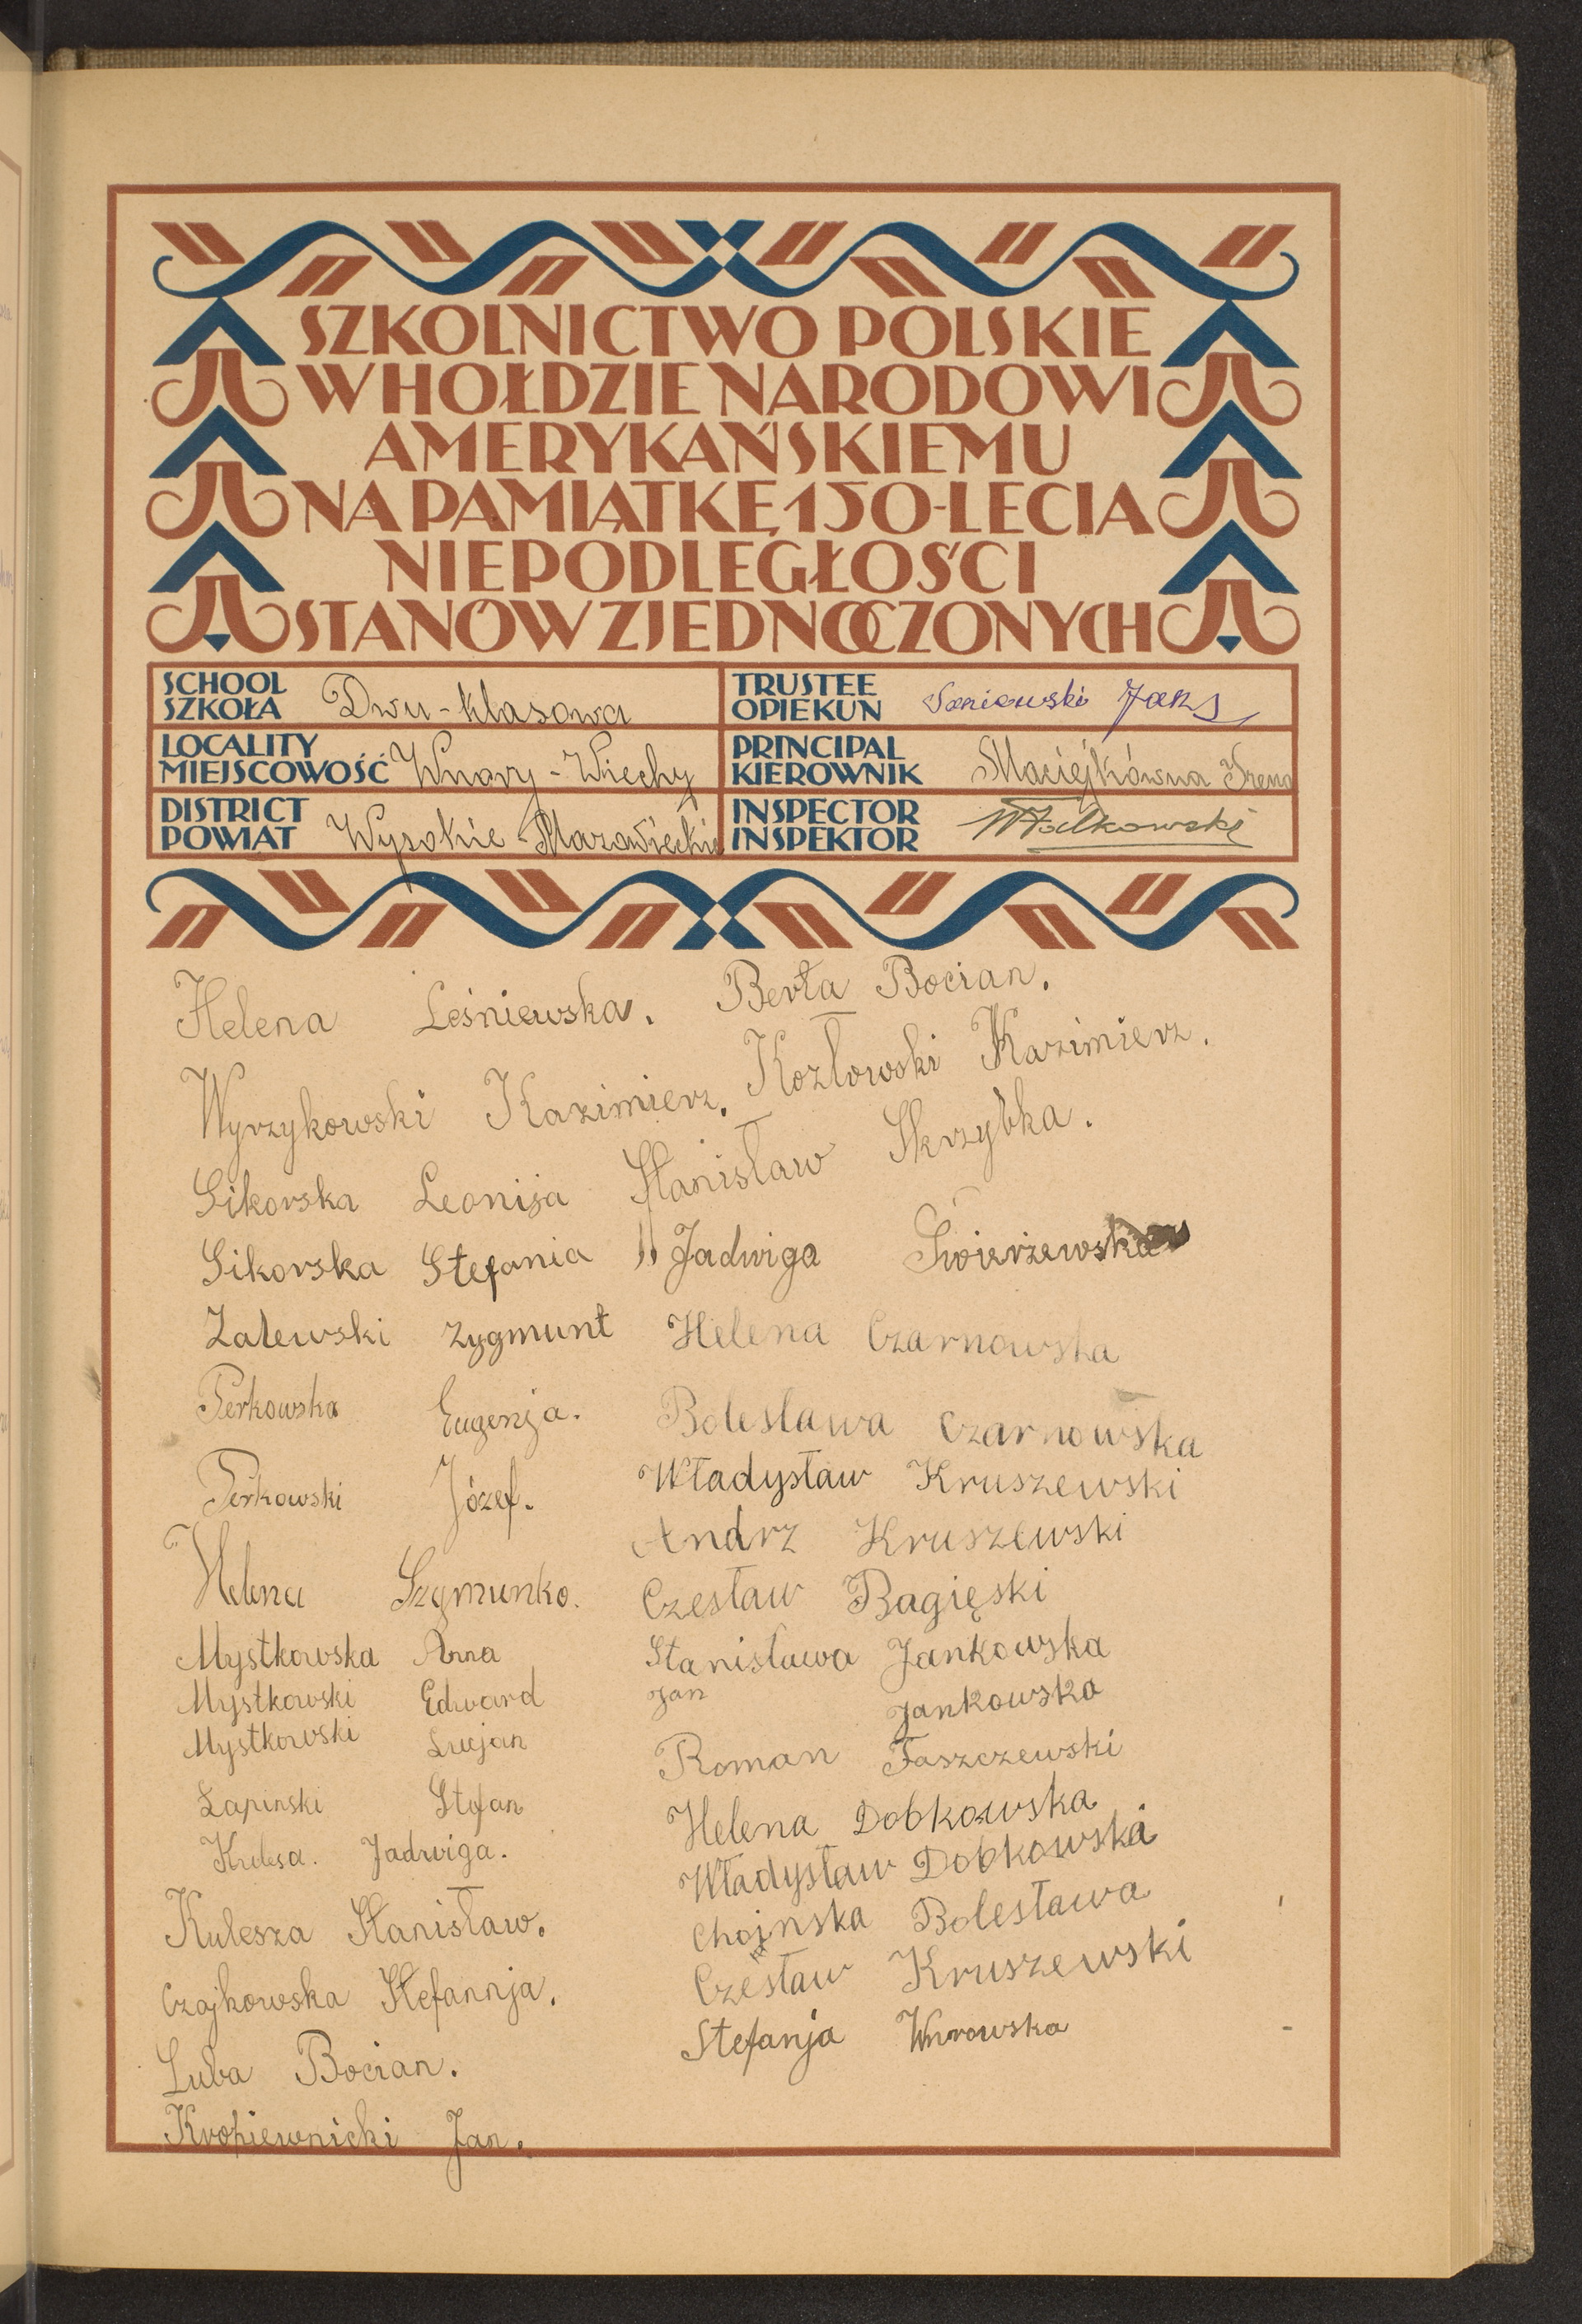 SZKOLNICTWO POLSKIE
W HOŁDZIE NARODOWI
AMERYKAŃSKIEMU
NA PAMIĄTKĘ 150-LECIA
NIEPODLEGŁOŚCI
STANÓW ZJEDNOCZONYCH
SCHOOL
SZKOŁA Dwu-klasowa
TRUSTEE
OPIEKUN Saniewski Jan
LOCALITY
MIEJSCOWOŚĆ Wnory-Wiechy
PRINCIPAL
KIEROWNIK Maciejkówna Irena
DISTRICT
POWIAT Wysokie-Mazowieckie
INSPECTOR
INSPEKTOR WFalkowski
Helena Leśniewska.
Wyrzykowski Kazimierz.
Sikorska Leonija
Sikorska Stefania
Zalewski Zygmunt
Perkowska Eugenja.
Perkowski Józef.
Helena Szymunko.
Mystkowska Anna
Mystkowski Edward
Mystkowski Lucjan
Łapinski Stefan
Kulesa. Jadwiga.
Kulesza Stanisław.
Czajkowska Stefannja.
Luba Bocian.
Kropiewnicki Jan.
Berta Bocian.
Kozłowski Kazimierz.
Stanisław Skrzybka.
Jadwiga Świerżewska
Helena Czarnowska
Bolesława Czarnowska
Władysław Kruszewski
Andrz Kruszewski
Czesław Bagięski
Stanisława Jankowska
Jan Jankowska
Roman Faszczewski
Helena Dobkowska
Władysław Dobkowski
Chojnska Bolesława
Czesław Kruszewski
Stefanja Wnorowska